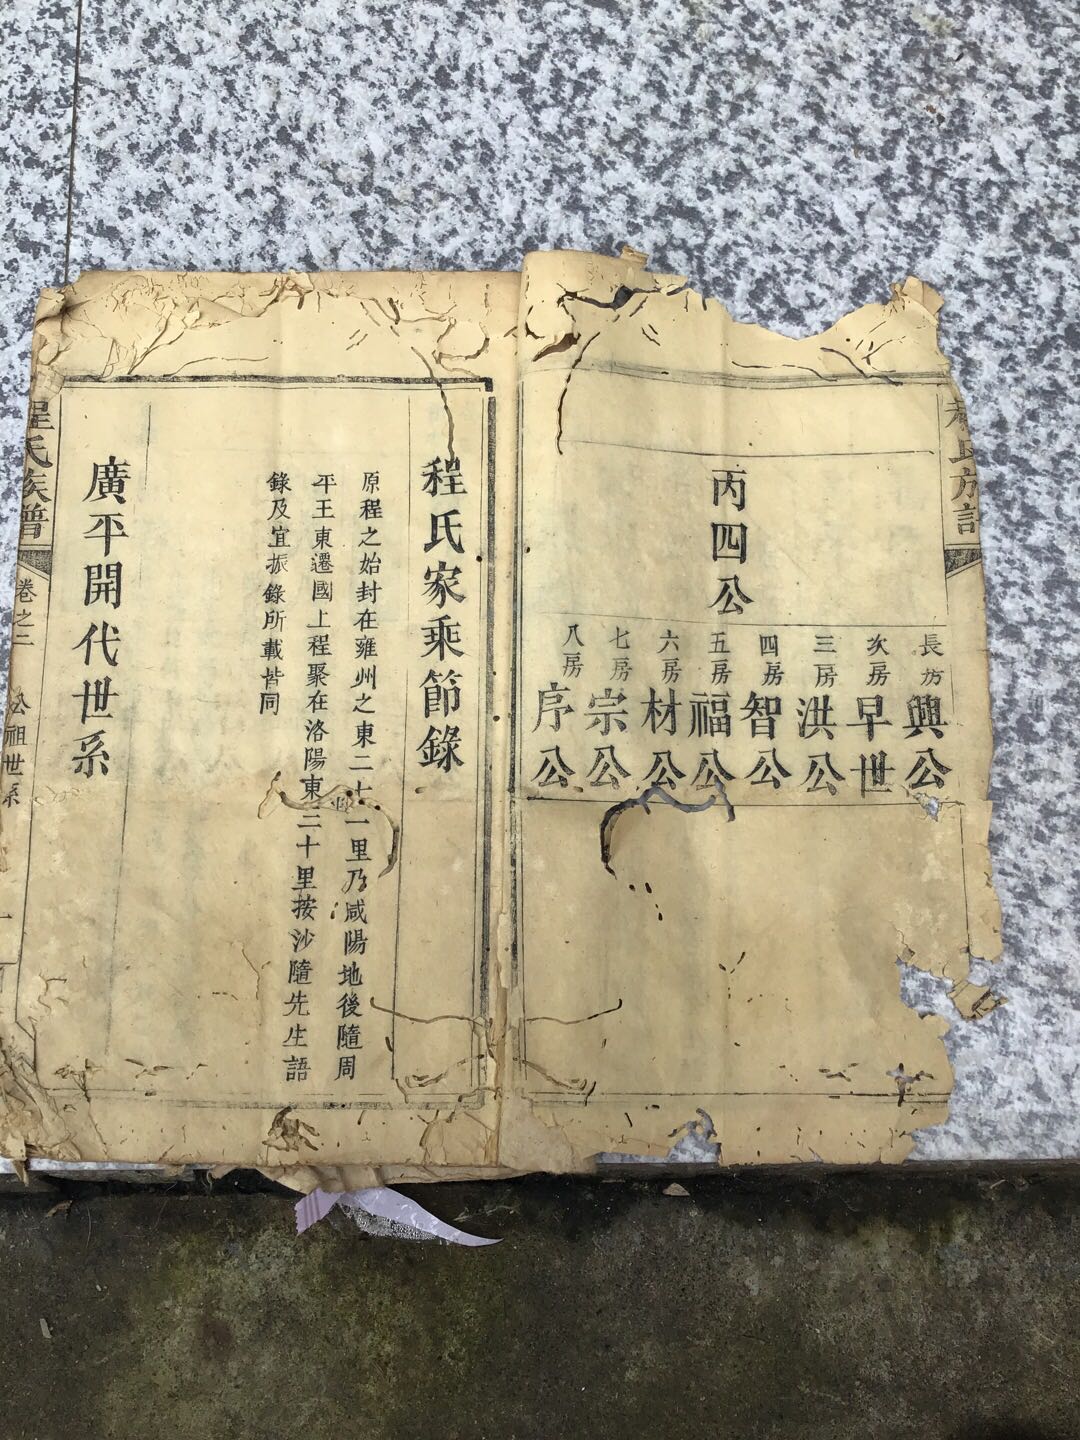 丙四公
長房興公
次房早世
三房洪公
四房智公
五房福公
六房材公
七房宗公
八房序公
程氏家乘節錄
原程之始封在雍州之東二十一里乃咸陽地後隨周
平王東遷國上程聚在洛陽東二十里按沙隨先生語
錄及宜振錄所載皆同
廣平開代世系
程氏族譜
卷之二
公祖世系